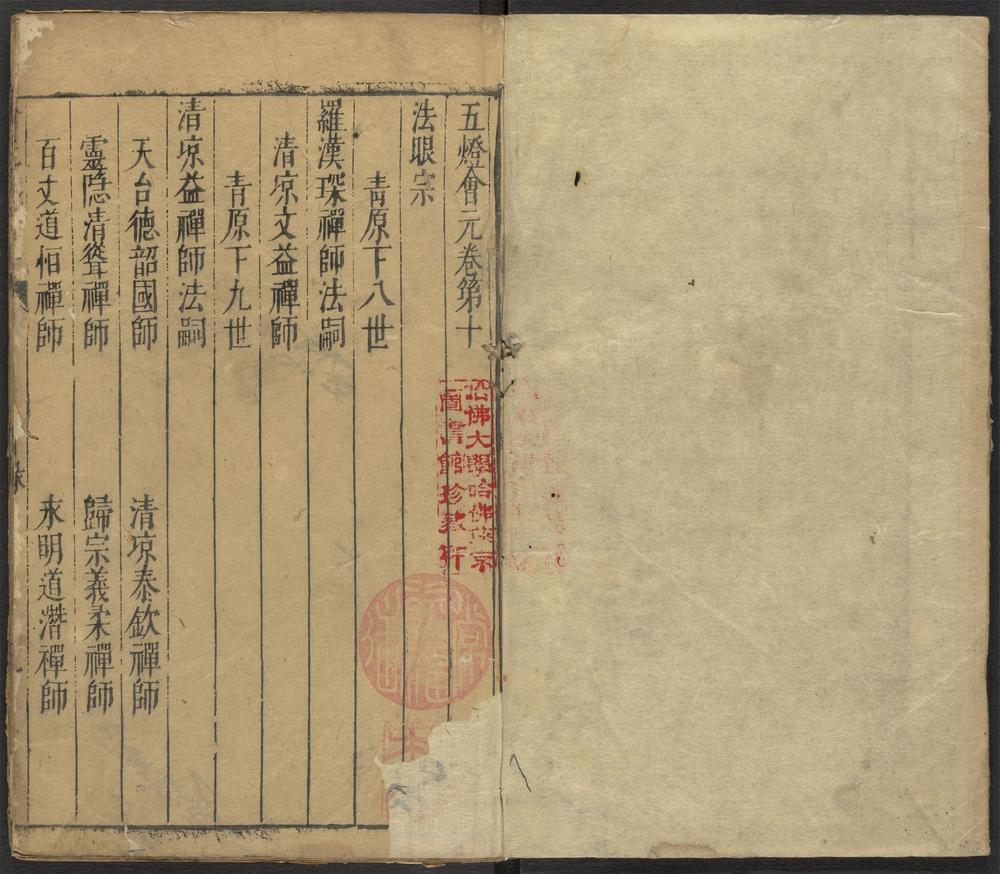 五燈會元卷第十
法眼宗
青原下八世
羅漢琛禪師法嗣
清凉文益禪師
青原下九世
清凉益禪師法嗣
天台德韶國師 清凉泰欽禪師
靈隱清聳禪師 歸宗義柔禪師
百丈道恒禪師 永明道潛禪師
哈佛大學哈佛燕京
圖書館珍藏所